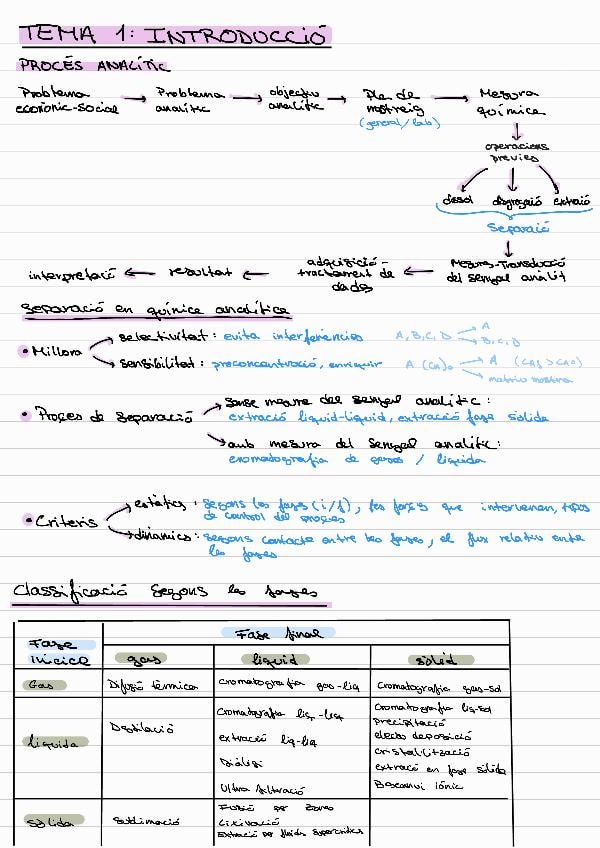 TEMA 1: INTRODUCCIÓ
PROCÉS ANALÍTIC
Problema econòmic-social → Problema analític → objectiu analític → Pla de mostreig (general/lab) → Mesura química
operacions prèvies
desol disgregació extració
Separació
Mesura-Transducció del senyal analít
interpretació ← resultat ← adquisició - tractament de dades
Separació en química analítica
• Millora
selectivitat: evita interferències A, B, C, D A
B, C, D
sensibilitat: preconcentració, enriquir A (CA)0 A (CAf > CA0)
matriu mostra
• Procés de Separació
Sense mesura del senyal analític:
extració líquid-líquid, extració fase sòlida
amb mesura del senyal analític:
cromatografia de gasos / líquida
• Criteris
estàtics: segons les fases (i/f), les forces que intervenen, tipos de control del procés
dinàmics: segons contacte entre les fases, el flux relatiu entre les fases
Classificació segons les fases
Fase inicial
Fase final
gas líquid sòlid
Gas Difusió tèrmica cromatografia gas-liq Cromatografia gas-sol
líquida
Destilació
cromatografia liq-liq
extració liq-liq
Diàlisi
Ultra filtració
Cromatografia liq-sol
precipitació
electro deposició
cristalització
extració en fase sòlida
Bescanvi iònic
Sòlida
Sublimació
Fusió per zones
Lixiviació
Extració per fluids supercrítics